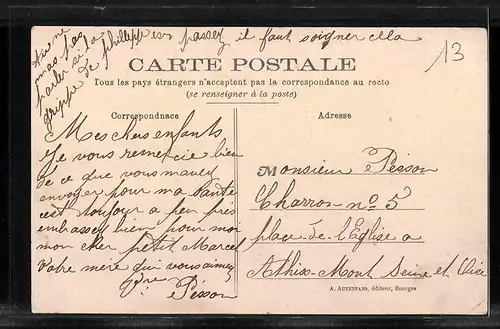 tu ne
mas pas
parler si la
grippe de phillippe es passez il faut soigner cella
13
CARTE POSTALE
Tous les pays étrangers n'acceptent pas la correspondance au recto
(se renseigner à la poste)
Correspondnace
Mes chers enfants
Je vous remercie bien
de ce que vous mavez
envoyer pour ma santé
cest toujour a peu prés
embassez bien pour moi
mon cher petit Marcel
Votre mère qui vous aimez
Pésson
Adresse
Monsieur Pésson
Charron nº 5
place de l'Eglise a
Athis-Mont Seine et Oise
A. Auxenfans, éditeur, Bourges